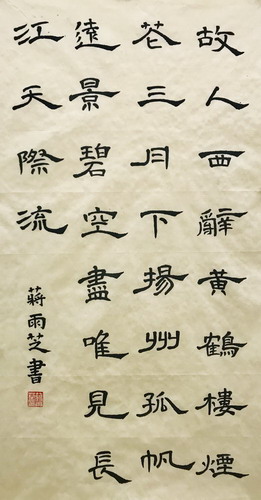 故人西辭黃鶴樓煙
花三月下揚州孤帆
遠景碧空盡唯見長
江天際流
蔣雨芝書